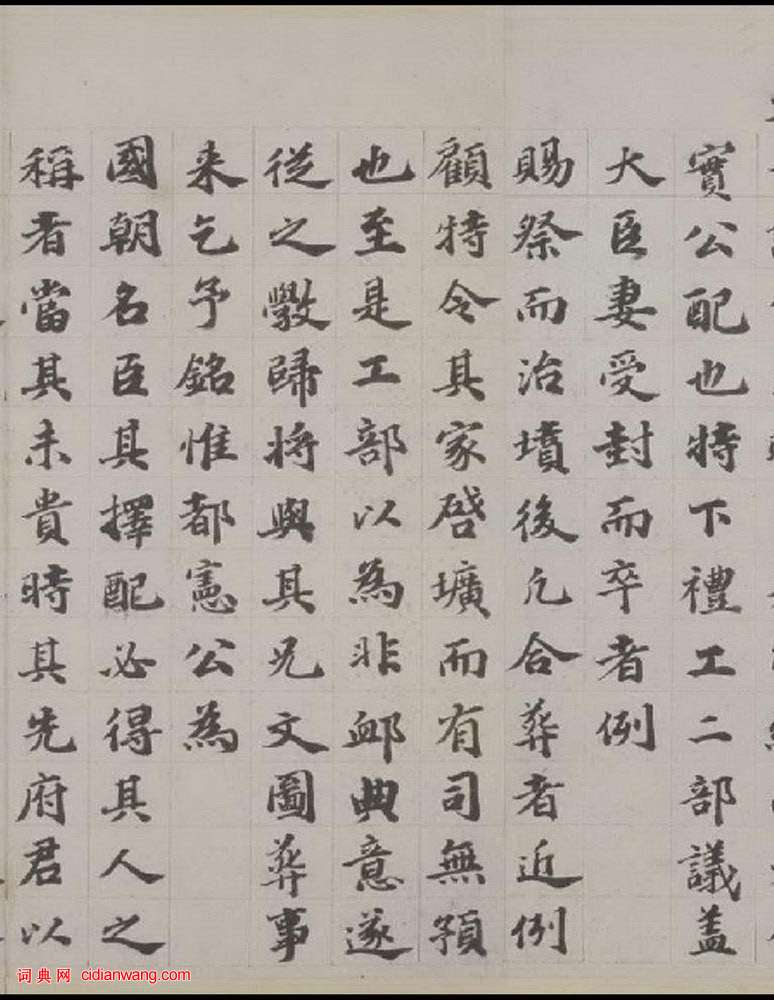 實公配也特下禮工二部議盖
大臣妻受封而卒者例
賜祭而治墳後凡合葬者近例
顧特令其家啓壙而有司無預
也至是工部以為非䘏典意遂
從之斅歸將與其兄文圖葬事
来乞予銘惟都憲公為
國朝名臣其擇配必得其人之
稱者當其未貴時其先府君以
词典网 cidianwang.com